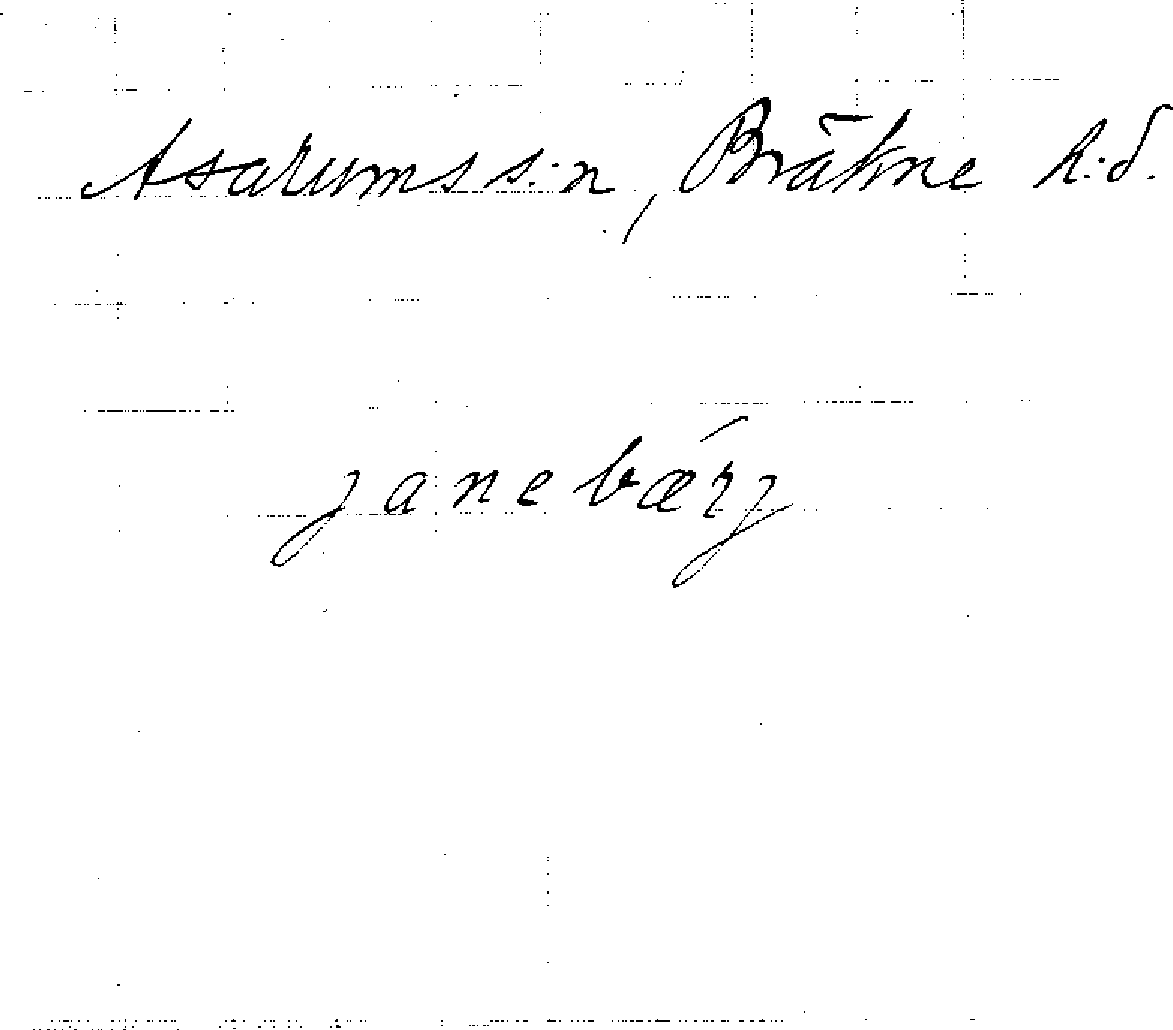 Asarums s:n, Bräkne h.d.
janebærj